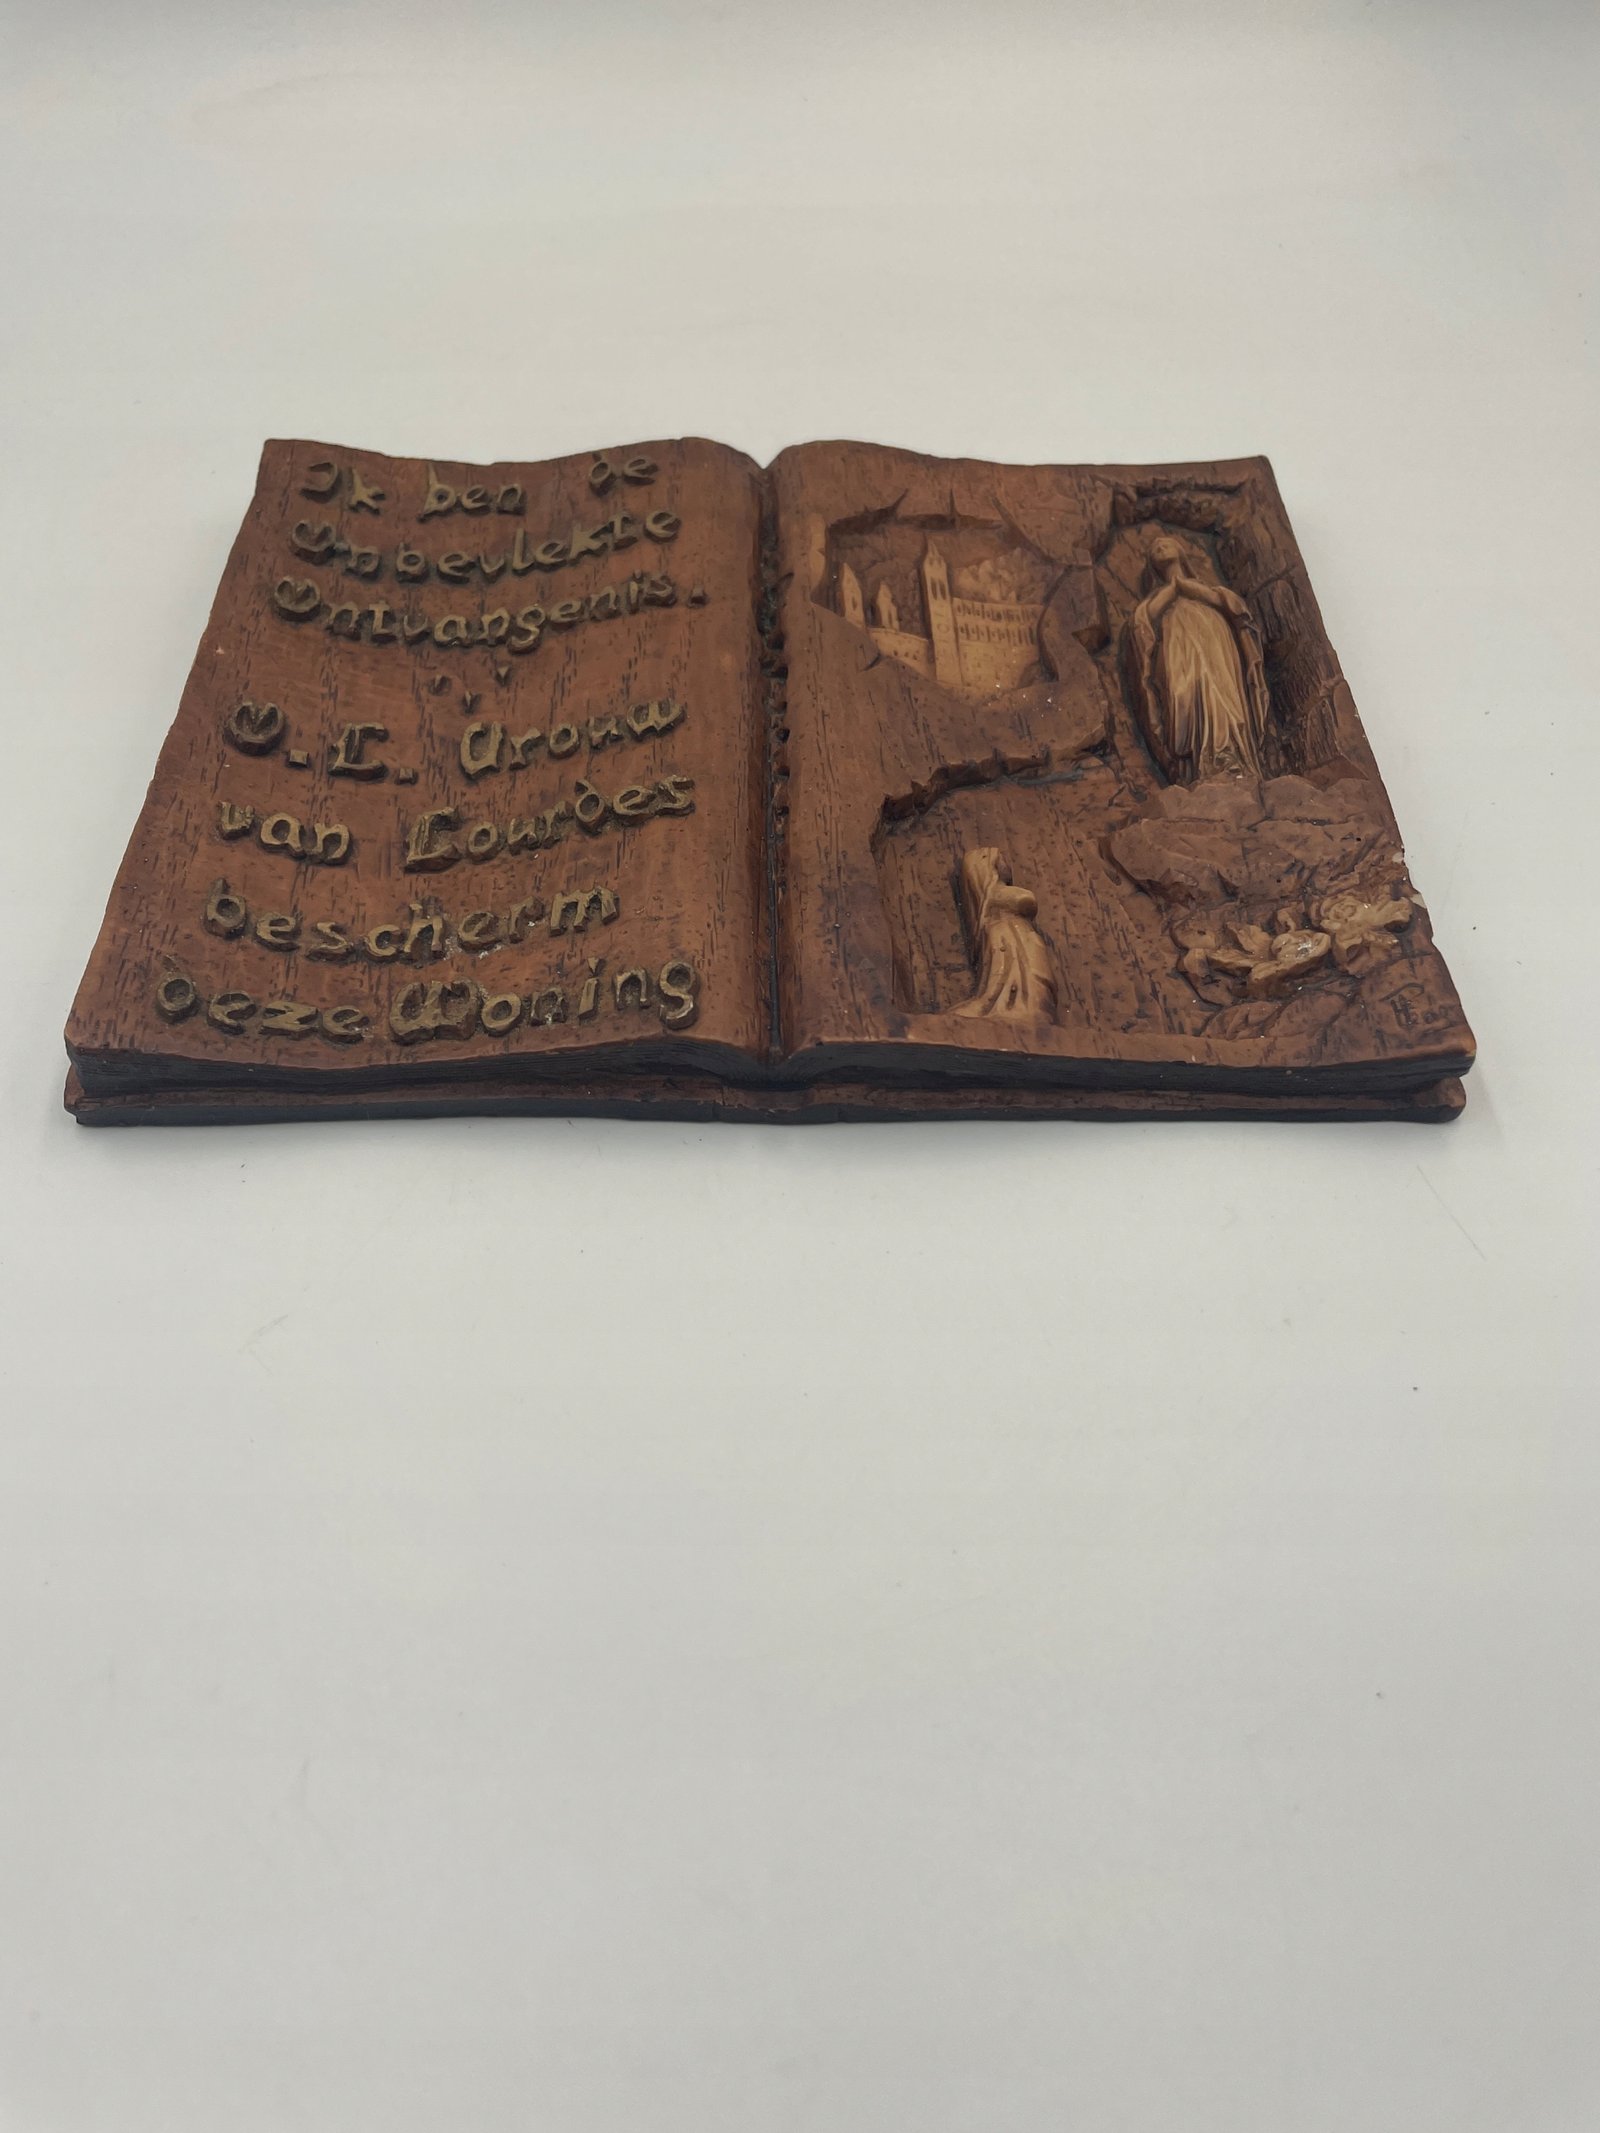 Ik ben de
Onbevlekte
Ontvangenis.
O. L. Vrouw
van Lourdes
bescherm
deze Woning